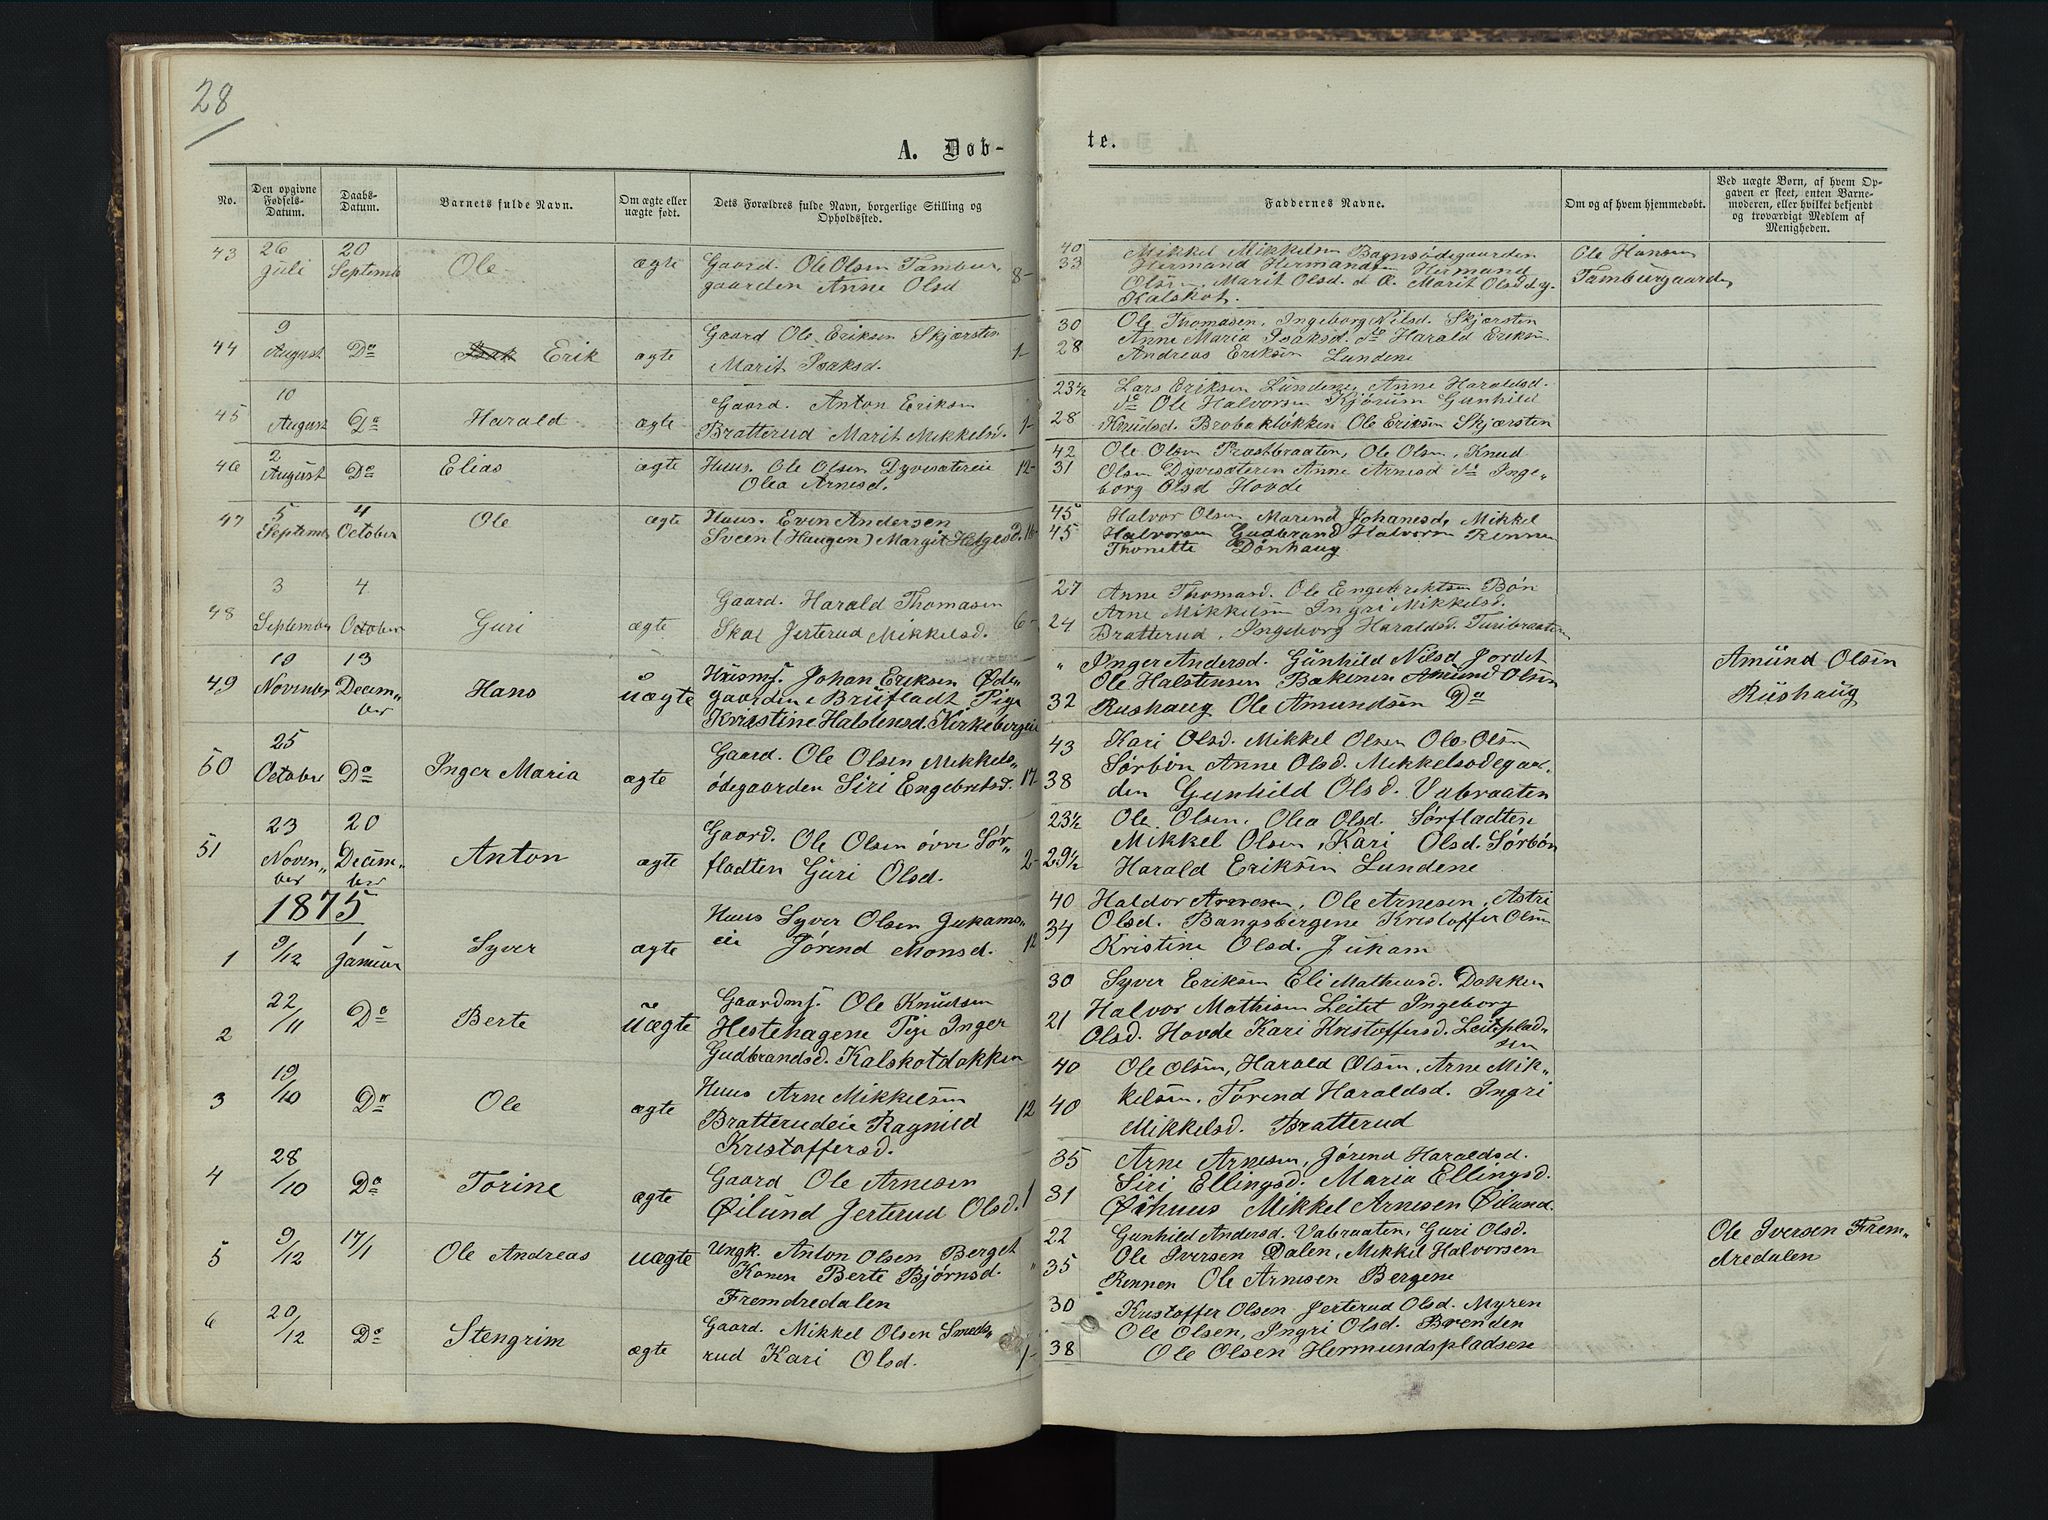 28
A. Døb-
te.
No.
Den opgivne Fødsels-Datum.
Daabs-Datum.
Barnets fulde Navn.
Om ægte eller uægte født.
Dets Forældres fulde Navn, borgerlige Stilling og Opholdssted.
Faddernes Navne.
Om og af hvem hjemmedøbt.
Ved uægte Børn, af hvem Opgaven er skeet, enten Barnemoderen, eller hvilket bekjendt og troværdigt Medlem af Menigheden.
43 26 Juli 20 Septemb Ole ægte
Gaard. Ole Olsen Tambur
gaarden Anne Olsd 8-
40 Mikkel Mikkelsen Bagnsødegaarden
33 Hermand Hermandsen Hermand
Olsen, Marit Olsd. Marit Olsd
Kalskot.
Ole Hansen
Tamburgaarden
44 9 August Do Erik ægte
Gaard Ole Eriksen Skjærsten
Marit Isaksd. 1-
30 Ole Thomasen, Ingeborg Nilsd. Skjærsten
Anne Maria Isaksd. do Harald Eriksen
28 Andreas Eriksen Lundene
45 10 August Do Harald ægte
Gaard. Anton Eriksen
Bratterud Marit Mikkelsd. 1-
23½ Lars Eriksen Lundene, Anne Haraldsd.
do Ole Halvorsen Kjørum Gunhild
28 Knudsd. Brobakløkken Ole Eriksen Skjærsten
46 2 August Do Elias ægte
Huus. Ole Olsen Dyvesætereie
Olea Arnesd. 12-
42 Ole Olsen Prastbraaten, Ole Olsen, Knud
31 Olsen Dyvesæteren Anne Arnesd do Inge-
borg Olsd Hovde
47 5 Septemb 4 October Ole ægte
Huus. Even Andersen
Sveen (Haugen) Margit Helgesd. 16-
45 Halvor Olsen Marend Johanesd, Mikkel
45 Halvorsen Gudbrand Halvorsen Rennen
Thonette Dønhaug
48 3 September 4 October Guri ægte
Gaard. Harald Thomasen
Skal Jerterud Mikkelsd. 6-
27 Anne Thomasd. Ole Engebrektsen Bøn
Arne Mikkelsen Ingri Mikkelsd.
24 Bratterud, Ingeborg Haraldsd. Turibraaten
49 19 November 13 December Hans uægte
Huusmf. Johan Eriksen Øde-
gaardene Brufladt Pige
Kristine Halstensd. Kirkebergeie
" Inger Andersd. Gunhild Nilsd Jordet
Ole Halstensen Bakenes Amund Olsen
32 Rushaug Ole Amundsen Do
Amund Olsen
Rushaug
50 25 October Do Inger Maria ægte
Gaard. Ole Olsen Mikkels-
ødegaarden Siri Engebretsd. 17-
43 Kari Olsd. Mikkel Olsen Ole Olsen
Sørbøn Anne Olsd. Mikkelsødegaar-
38 den Gunhild Olsd. Vabraaten
51 23 November 20 December Anton ægte
Gaard. Ole Olsen øvre Sør-
fladten Guri Olsd. 2-
23½ Ole Olsen, Olea Olsd. Sørfladten
Mikkel Olsen, Kari Olsd. Sørbøn
29½ Harald Eriksen Lundene
1875
1 9/12 1 Januar Syver ægte
Huus Syver Olsen Jukams-
eie Jørend Monsd. 12
40 Haldor Arnesen, Ole Arnesen, Astri
34 Olsd. Bangsbergene Kristoffer Olsen
Kristine Olsd. Jukam
2 22/11 Do Berte uægte
Gaardmf. Ole Knudsen
Hestehagene Pige Inger
Gudbrandsd. Kalskotdokken
30 Syver Eriksen Eli Mathiasd. Dokken
Halvor Mathisen Leitet Ingeborg
21 Olsd. Hovde Kari Kristoffersd. Leiteplad-
sen
3 19/10 Do Ole ægte
Huus Arne Mikkelsen
Bratterudeie Ragnild
Kristoffersd. 12
40 Ole Olsen, Harald Olsen, Arne Mik-
40 kelsen, Torend Haraldsd. Ingri
Mikkelsd. Bratterud
4 28/10 Do Torine ægte
Gaard Ole Arnesen
Øilund Jerterud Olsd. 1
35 Arne Arnesen, Jørend Haraldsd.
Siri Ellingsd. Maria Ellingsd.
31 Øihuus Mikkel Arnesen Øilund.
5 9/12 17/1 Ole Andreas uægte
Ungk. Anton Olsen Berget
Konen Berte Bjørnsd.
Fremdredalen "
22 Gunhild Andersd. Vabraaten, Guri Olsd.
Ole Iversen Dalen, Mikkil Halvorsen
35 Rennen Ole Arnesen Bergene
Ole Iversen Frem-
dredalen
6 20/12 Do Stengrim ægte
Gaard. Mikkel Olsen Smeds-
rud Kari Olsd. 1-
30 Kristoffer Olsen Jerterud Olsd. Myren
Ole Olsen, Ingri Olsd. Brenden
38 Ole Olsen Hermundspladsene